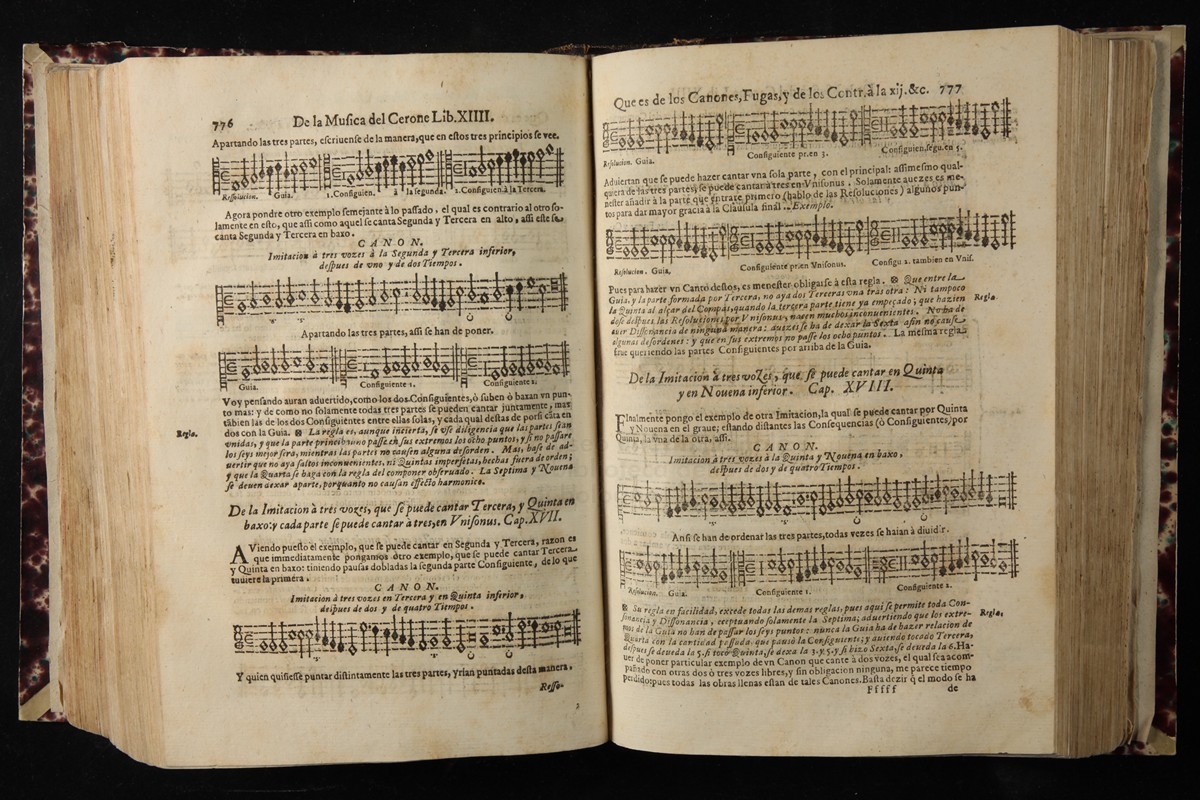 776 De la Musica del Cerone Lib. XIIII.
Apartando las tres partes, escriuense de la manera, que en estos tres principios se vee.
Resolucion. Guia. 1. Consiguien. à la segunda. 2. Consiguien. à la Tercera.
Agora pondre otro exemplo semejante à lo passado, el qual es contrario al otro so-
lamente en esto, que assi como aquel se canta Segunda y Tercera en alto, assi este se
canta Segunda y Tercera en baxo.
CANON.
Imitacion à tres vozes à la Segunda y Tercera inferior,
despues de vno y de dos Tiempos.
Apartando las tres partes, assi se han de poner.
Guia. Consiguiente 1. Consiguiente 2.
Voy pensando auran aduertido, como los dos Consiguientes, ò suben ò baxan vn pun-
to mas: y de como no solamente todas tres partes se pueden cantar juntamente, mas
tābien las de los dos Consiguientes entre ellas solas, y cada qual destas de por si cāta en
dos con la Guia. ※ La regla es, aunque incierta, se vse diligencia que las partes sean
Regla.
vnidas, y que la parte principal no passe en sus extremos los ocho puntos, y si no passare
los seys mejor serà, mientras las partes no causen alguna desorden. Mas, hase de ad-
uertir que no aya saltos inconuenientes, ni Quintas imperfetas, hechas fuera de orden;
y que la Quarta se haga con la regla del componer obseruado. La Septima y Nouena
se deuen dexar aparte, porquanto no causan effecto harmonico.
De la Imitacion à tres vozes, que se puede cantar Tercera, y Quinta en
baxo: y cada parte se puede cantar à tres, en Vnisonus. Cap. XVII.
AViendo puesto el exemplo, que se puede cantar en Segunda y Tercera, razon es
que immediatamente pongamos otro exemplo, que se puede cantar Tercera
y Quinta en baxo: tiniendo pausas dobladas la segunda parte Consiguiente, de lo que
tuuiere la primera.
CANON.
Imitacion à tres vozes en Tercera y en Quinta inferior,
despues de dos y de quatro Tiempos.
Y quien quisiesse puntar distintamente las tres partes, yrian puntadas desta manera.
Reso-
Que es de los Canones, Fugas, y de los Contr. à la xij. &c. 777
Resolucion. Guia. Consiguiente pr. en 3. Consiguien. segu. en 5.
Aduiertan que se puede hazer cantar vna sola parte, con el principal: assimesmo qual-
quera de las tres partes, se puede cantar à tres en Vnisonus. Solamente auezes es me-
nester añadir à la parte que entrare primero (hablo de las Resoluciones) algunos pun-
tos para dar mayor gracia à la Clausula final. Exemplo.
Resolucion. Guia. Consiguiente pr. en Vnisonus. Consigu 2. tambien en Vnis.
Pues para hazer vn Canto destos, es menester obligarse à esta regla. ※ Que entre la
Guia, y la parte formada por Tercera, no aya dos Terceras vna tras otra: Ni tampoco
Regla.
la Quinta al alçar del Compas, quando la tercera parte tiene ya empeçado; que hazien
dose despues las Resoluciones por Vnisonus, nacen muchos inconuenientes. No ha de
auer Dissonancia de ninguna manera: auezes se ha de dexar la Sexta afin no cause
algunas desordenes: y que en sus extremos no passe los ocho puntos. La mesma regla
sirue queriendo las partes Consiguientes por arriba de la Guia.
De la Imitacion à tres vozes, que se puede cantar en Quinta
y en Nouena inferior. Cap. XVIII.
FInalmente pongo el exemplo de otra Imitacion, la qual se puede cantar por Quinta
y Nouena en el graue; estando distantes las Consequencias (ò Consiguientes) por
Quinta, la vna de la otra, assi.
CANON.
Imitacion à tres vozes à la Quinta y Nouena en baxo,
despues de dos y de quatro Tiempos.
Ansi se han de ordenar las tres partes, todas vezes se haian à diuidir.
Resolucion. Guia. Consiguiente 1. Consiguiente 2.
※ Su regla en facilidad, excede todas las demas reglas, pues aqui se permite toda Con-
sonancia y Dissonancia, eceptuando solamente la Septima; aduertiendo que los extre-
Regla.
mos de la Guia no han de passar los seys puntos: nunca la Guia ha de hazer relacion de
Quarta con la cantidad passada, que pausò la Consiguiente; y auiendo tocado Tercera,
despues se deueda la 5. si tocò Quinta, se dexa la 3. y 5. y si hizo Sexta, se deueda la 6. Ha-
uer de poner particular exemplo de vn Canon que cante à dos vozes, el qual sea acom-
pañado con otras dos ò tres vozes libres, y sin obligacion ninguna, me parece tiempo
perdido: pues todas las obras llenas estan de tales Canones. Basta dezir q̃ el modo se ha
Fffff de